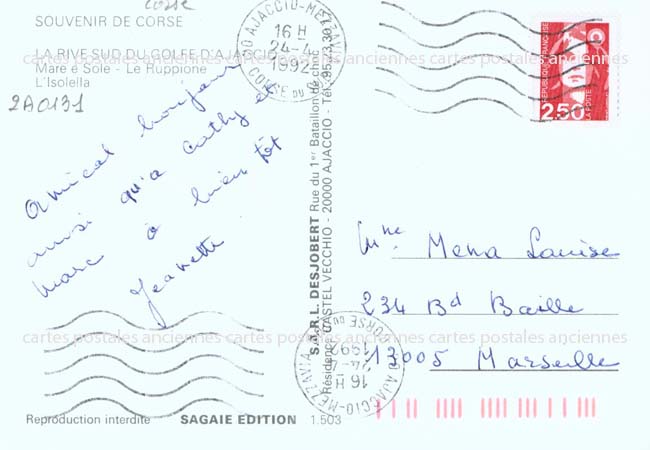 Corse
SOUVENIR DE CORSE
LA RIVE SUD DU GOLFE D'AJACCIO
Mare é Sole - Le Ruppione
L'Isolella
2A0131
20 AJACCIO-MEZZAVIA
16 H
24-4
1992
CORSE DU SUD
REPUBLIQUE FRANÇAISE
2,50
LA POSTE
Amical bonjour
ainsi qu'a Cathy et
Marc a bien tôt
Jeanette
S.A.R.L. DESJOBERT Rue du 1er Bataillon de choc
Résidence CASTEL VECCHIO - 20000 AJACCIO - Tél.
Mme Mena Louise
234 Bd Baille
13005 Marseille
cartes postales anciennes cartes postales anciennes cartes postales anciennes
cartes postales anciennes cartes postales anciennes cartes postales anciennes
20 AJACCIO-MEZZAVIA
16 H
24-4
1992
CORSE DU SUD
Reproduction interdite
SAGAIE EDITION
1.503